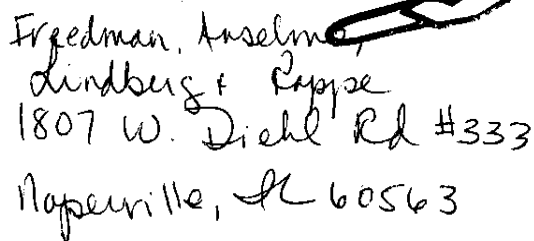 Freedman, Anselmo,
Lindberg & Rappe
1807 W. Diehl Rd #333
Naperville, IL 60563